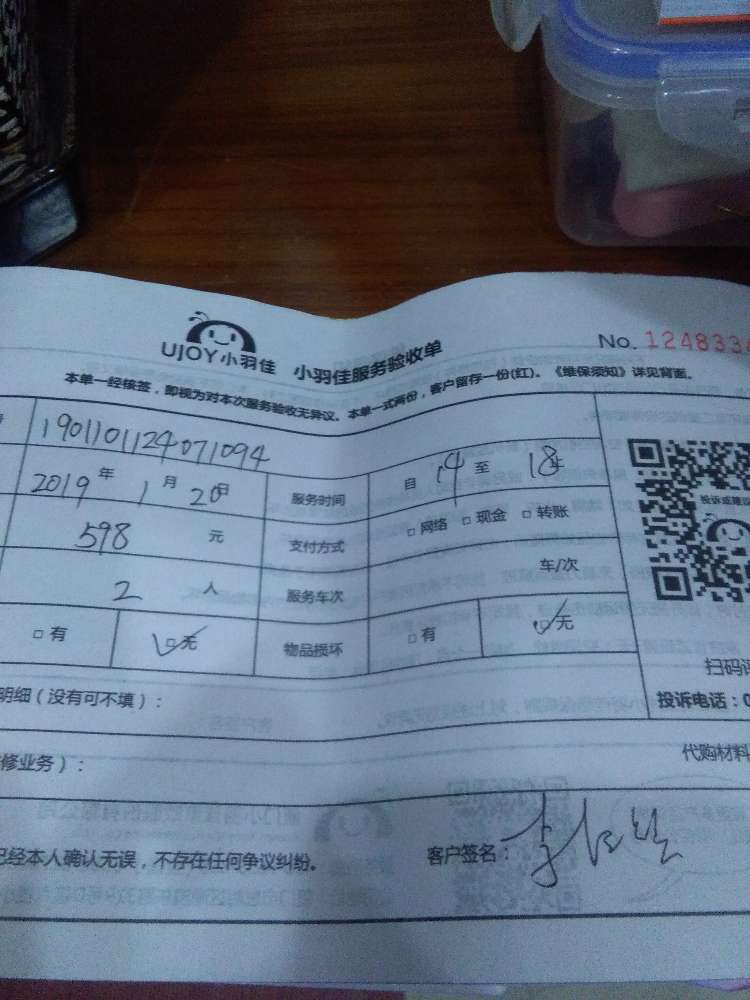 UJOY小羽佳 小羽佳服务验收单 No. 1248334
本单一经核签，即视为对本次服务验收无异议。本单一式两份，客户留存一份(红)。《维保须知》详见背面。
190110112407 1094
2019 年 1 月 20 日 服务时间 自 14 至 18 午
598 元 支付方式 □ 网络 □ 现金 □ 转账
2 人 服务车次 车/次
□ 有 □ 无 物品损坏 □ 有 □ 无
投诉或建议
扫码评
明细（没有可不填）： 投诉电话：0
修业务）： 代购材料
已经本人确认无误，不存在任何争议纠纷。 客户签名：